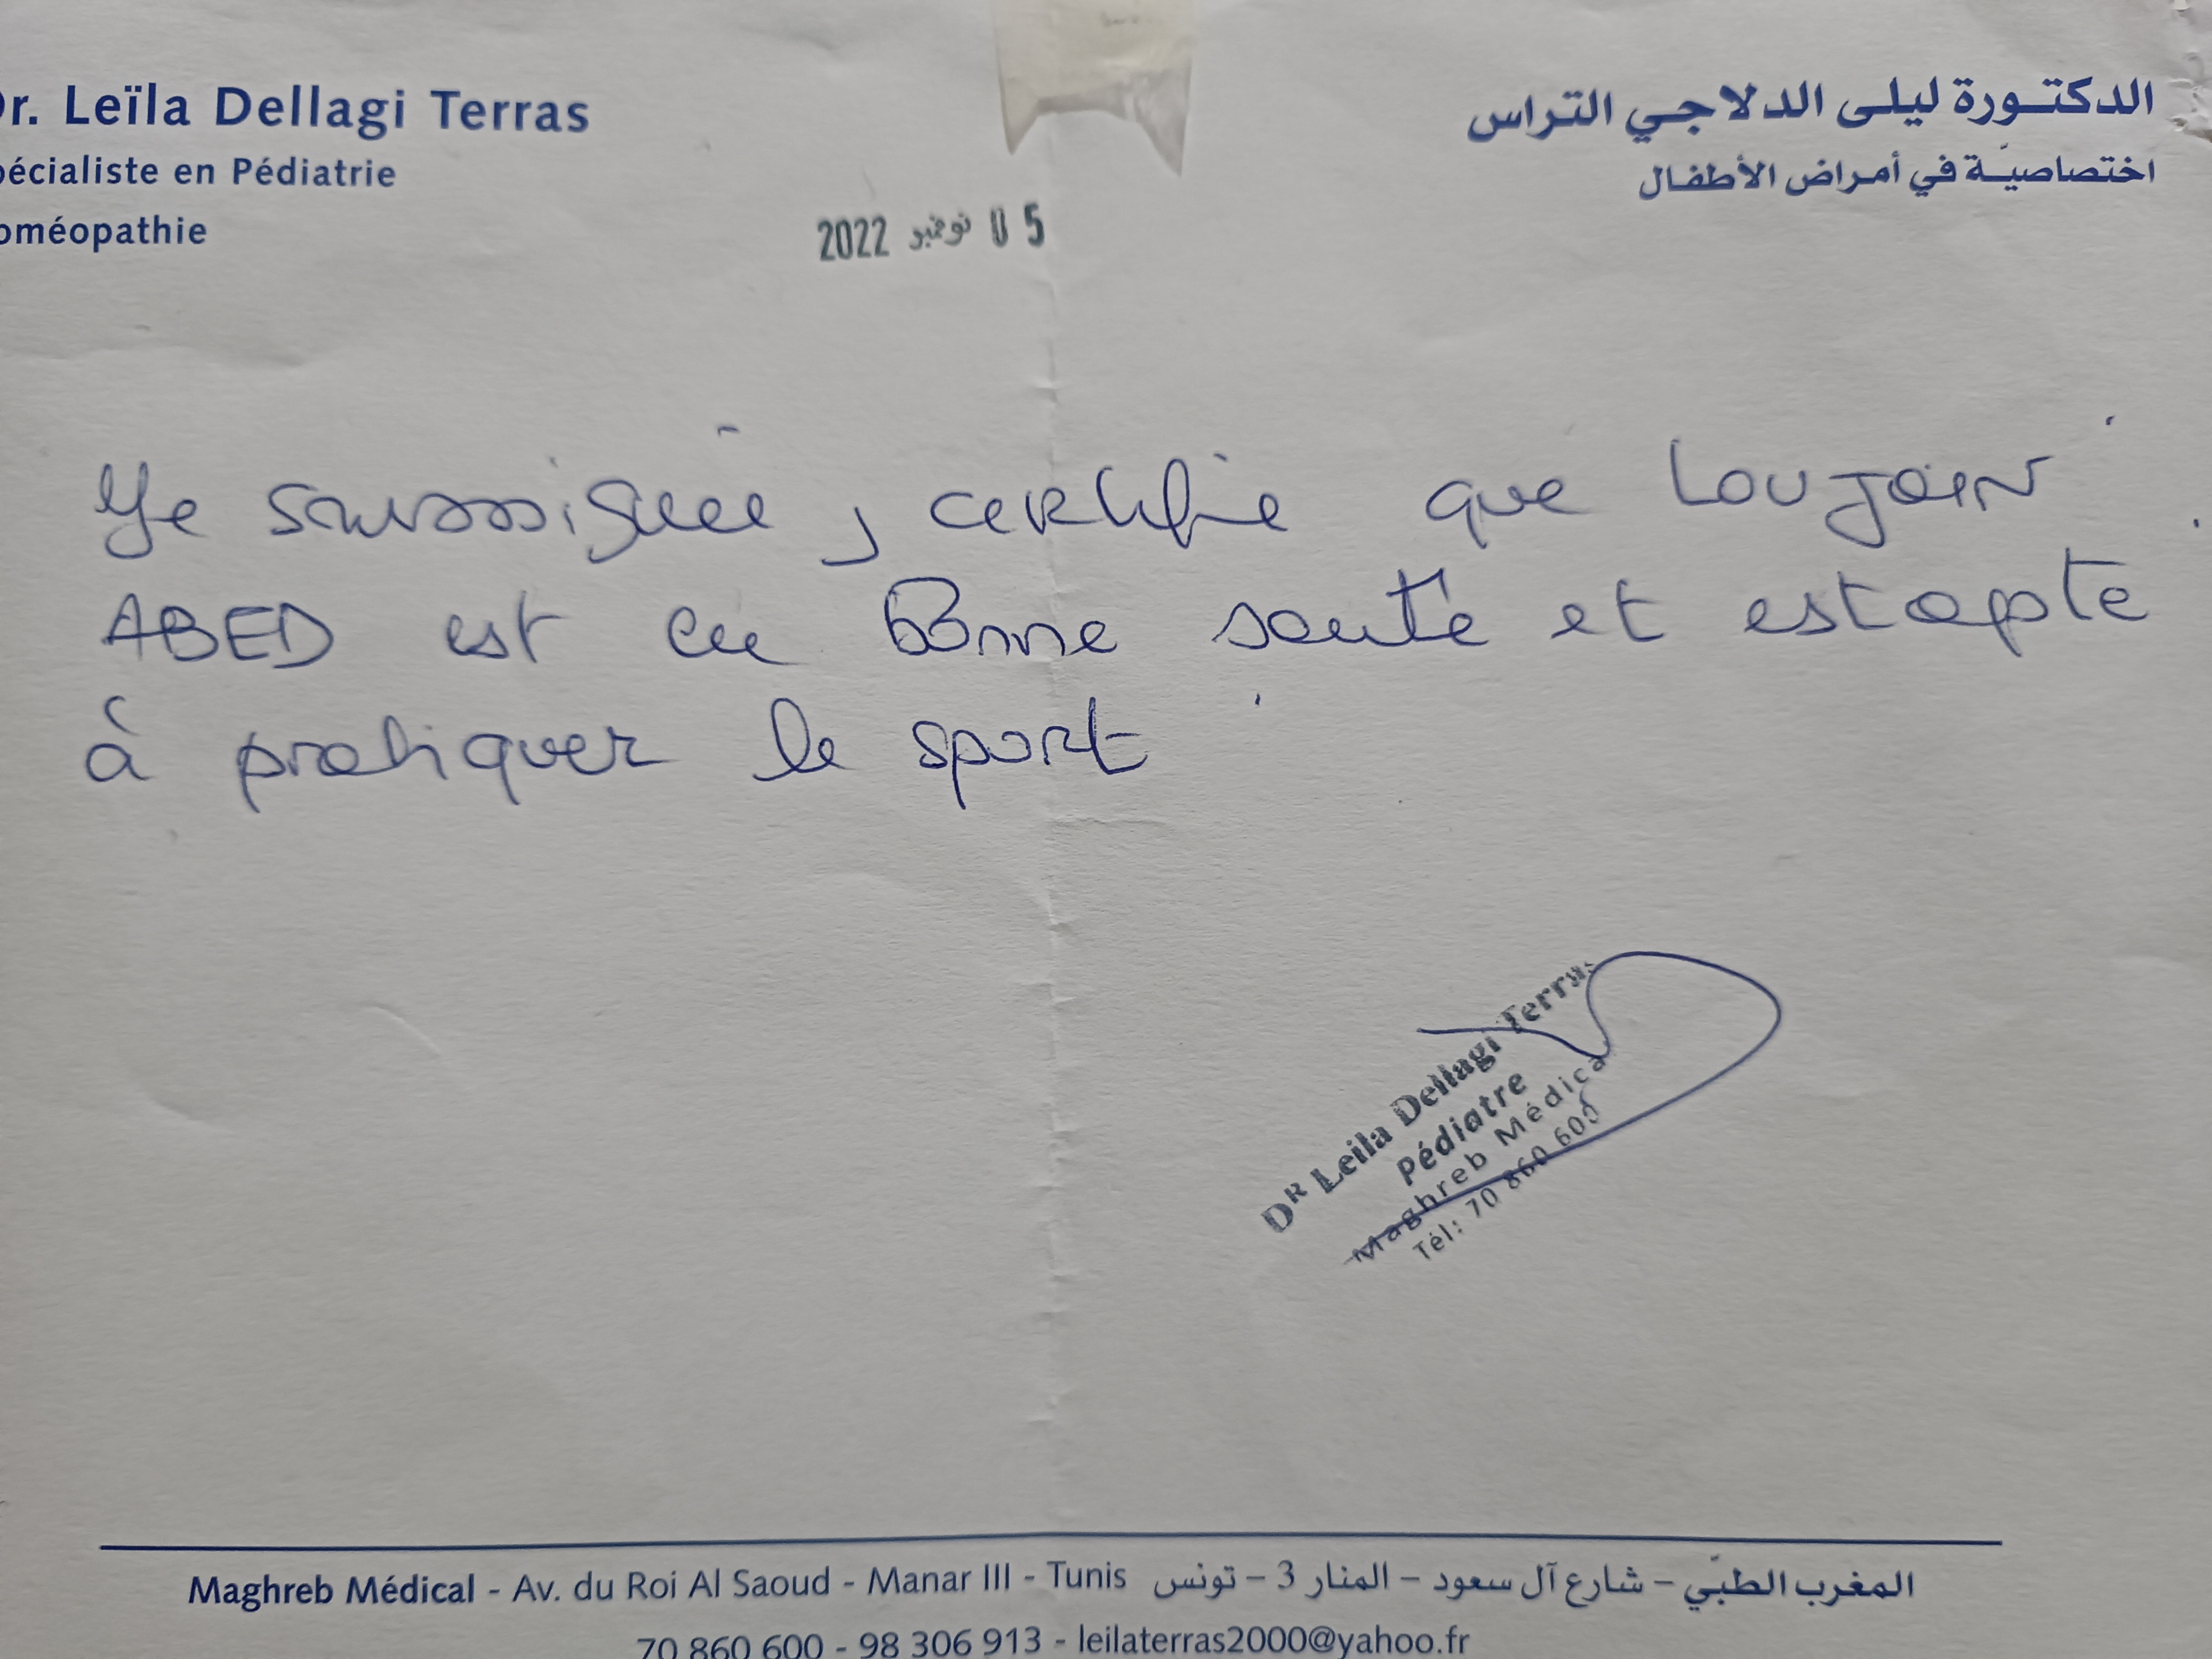 Dr. Leïla Dellagi Terras
pécialiste en Pédiatrie
oméopathie
الدكتورة ليلى الدلاجي التراس
اختصاصيّة في أمراض الأطفال
05 نوفمبر 2022
Je soussignée, certifie que Loujain
ABED est en Bonne santé et est apte
à pratiquer le sport
DR Leila Dellagi Terras
Pédiatre
Maghreb Médical
Tél: 70 860 600
Maghreb Médical - Av. du Roi Al Saoud - Manar III - Tunis المغرب الطبّي – شارع آل سعود – المنار 3 – تونس
70 860 600 - 98 306 913 - leilaterras2000@yahoo.fr